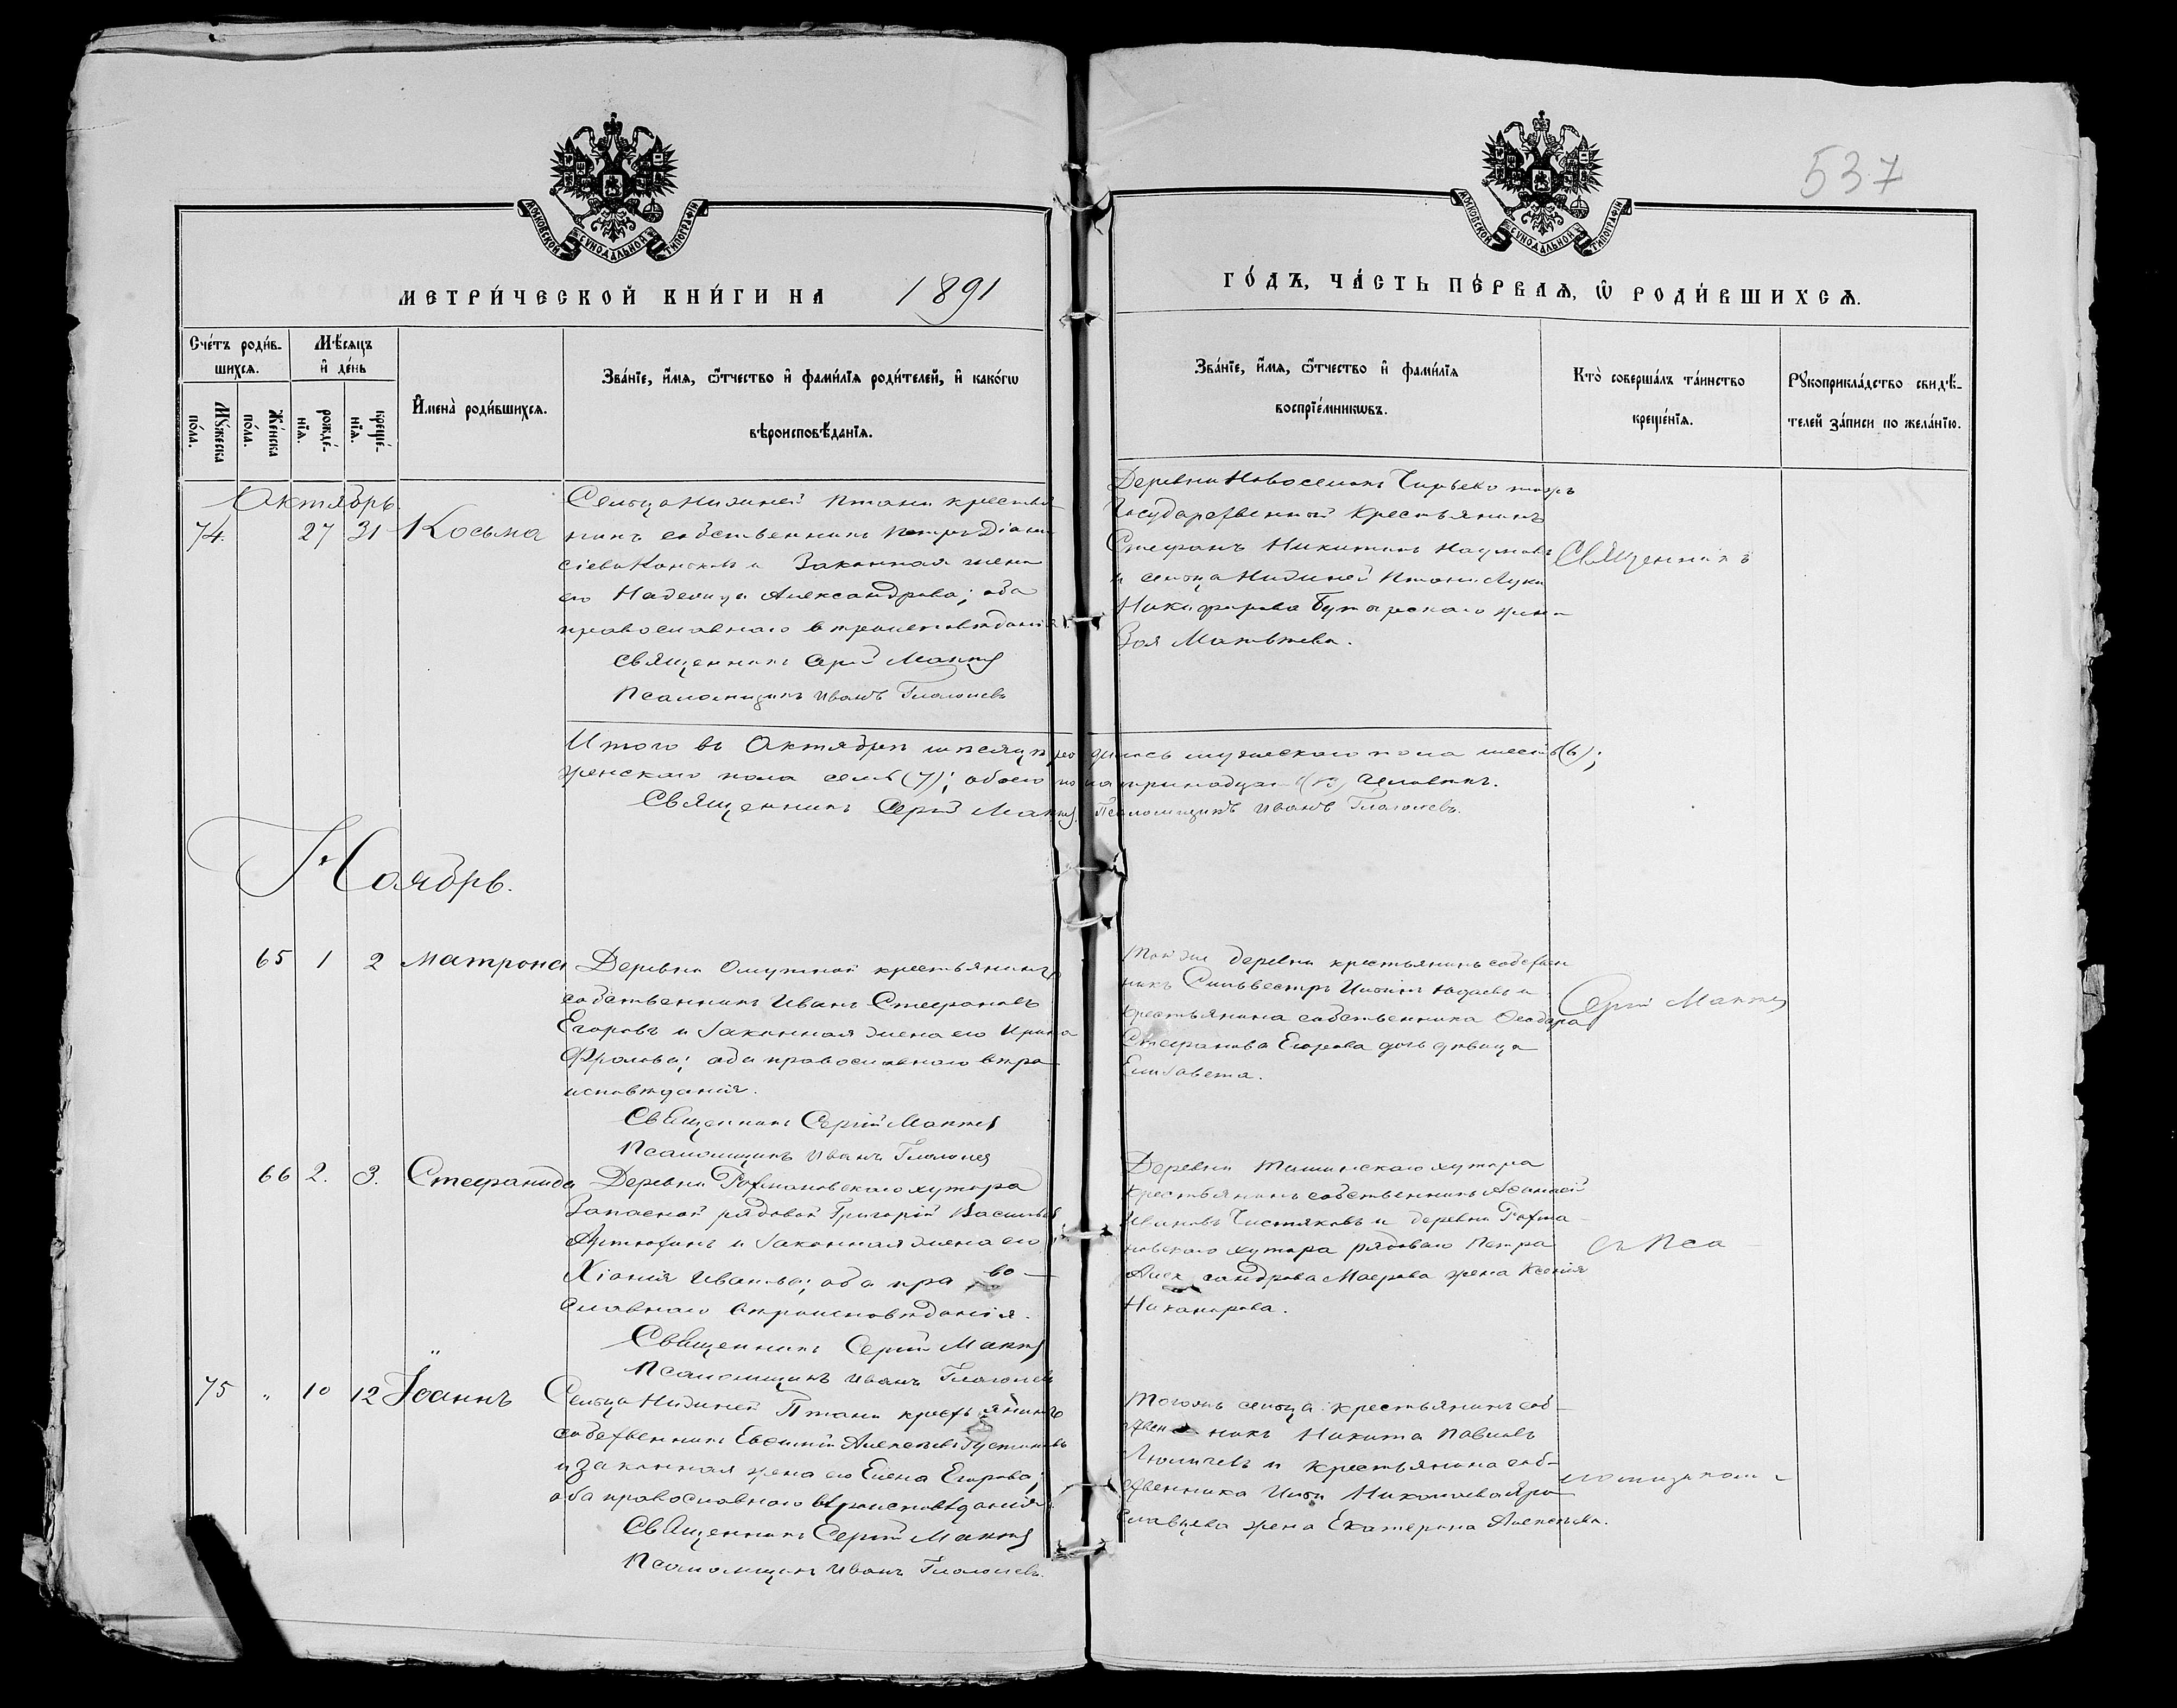 537
МОСКОВСКОЙ СѴНОДАЛЬНОЙ ТИПОГРАФІИ
МОСКОВСКОЙ СѴНОДАЛЬНОЙ ТИПОГРАФІИ
МЕТРИ́ЧЕСКОЙ КНИ́ГИ НА 1891
ГО́ДЪ, ЧА́СТЬ ПЕ́РВАѦ, Ѡ҆ РОДИ́ВШИХСѦ.
Сче́тъ роди́в-
шихсѧ.
Мꙋ́жеска
по́ла.
Же́нска
по́ла.
Мѣ́сѧцъ
и҆ де́нь
рожде́-
нїѧ.
креще́-
нїѧ.
И҆мена̀ роди́вшихсѧ.
Зва́нїе, и҆́мѧ, ѻ҆́тчество и҆ фами́лїѧ роди́телей, и҆ како́гѡ
вѣроисповѣ́данїѧ.
Зва́нїе, и҆́мѧ, ѻ҆́тчество и҆ фами́лїѧ
воспрїе́мникѡвъ.
Кто̀ соверша́лъ та́инство
креще́нїѧ.
Рꙋкоприкла́дство свидѣ́-
телей за́писи по жела́нїю.
Октябрь
74. 27 31 Косьма
Сельца Нижней Птани крестья
нинъ собственникъ Петръ Діони
сіевъ и Законная жена
его Надежда Александрова; оба
православнаго вѣроисповѣданія.
Священникъ Сергій
Псаломщикъ Иванъ Глаголевъ
Деревни Новоселокъ
Государственный Крестьянинъ
Стефанъ Никитинъ Наумовъ
и сельца Нижней Птани Луки
Никифорова Бутырскаго жена
Зоя Матвѣева.
Священникъ
Итого въ Октябрѣ мѣсяцѣ родилось мужескаго пола шесть (6);
женскаго пола семь (7); обоего пола тринадцать (13) человѣкъ.
Священникъ Сергій Псаломщикъ Иванъ Глаголевъ.
Ноябрь.
65 1 2 Матрона
Деревни Омутной крестьянинъ
собственникъ Иванъ Стефановъ
Егоровъ и законная жена его Ирина
Фролова; оба православнаго вѣро
исповѣданія.
Священникъ Сергій
Псаломщикъ Иванъ Глаголев
Той же деревни крестьянинъ собствен
никъ Сильвестръ и
крестьянина собственника Ѳеодора
Стефанова Егорова дочь дѣвица
Елисавета.
Сергій
66 2. 3. Стефанида
Деревни хутора
Запасной рядовой Григорій Васильевъ
и законная жена его
Хіонія Иванова; оба право-
славнаго вѣроисповѣданія.
Священникъ Сергій
Псаломщикъ Иванъ Глаголевъ
Деревни хутора
крестьянинъ собственникъ Аѳанасій
Ивановъ Чистяковъ и деревни
хутора рядоваго Петра
Александрова жена Ксенія
Никанорова.
съ Пса-
75 " 10 12 Іоаннъ
Сельца Нижней Птани крестьянинъ
собственникъ Евѳимій Алексѣевъ
и законная жена его Елена Егорова;
оба православнаго вѣроисповѣданія.
Священникъ Сергій
Псаломщикъ Иванъ Глаголевъ.
Тогожъ сельца крестьянинъ соб-
ственникъ Никита Павловъ
и крестьянина соб-
ственника Николаева Яро
славцева жена Екатерина Алексѣева.
ломщикомъ